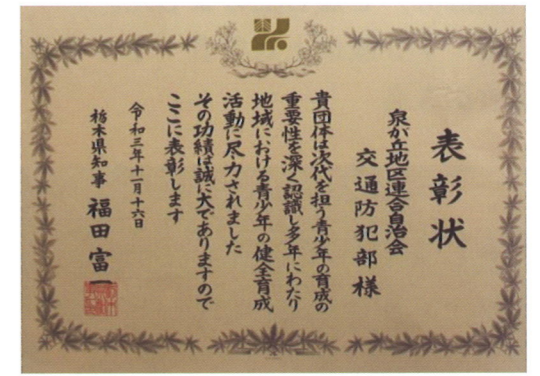 表彰状
泉が丘地区連合自治会
交通防犯部様
貴団体は次代を担う青少年の育成の
重要性を深く認識し多年にわたり
地域における青少年の健全育成
活動に尽力されました
その功績は誠に大でありますので
ここに表彰します
令和三年十一月十六日
栃木県知事 福田富一